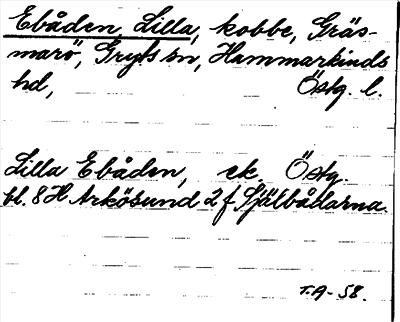 Ebåden, Lilla, kobbe, Gräs-
marö, Gryts sn, Hammarkinds
hd, Östg. l.
Lilla Ebåden, ek. Östg.
bl. 8H Arkösund 2 f Själbådarna.
T.A-58.